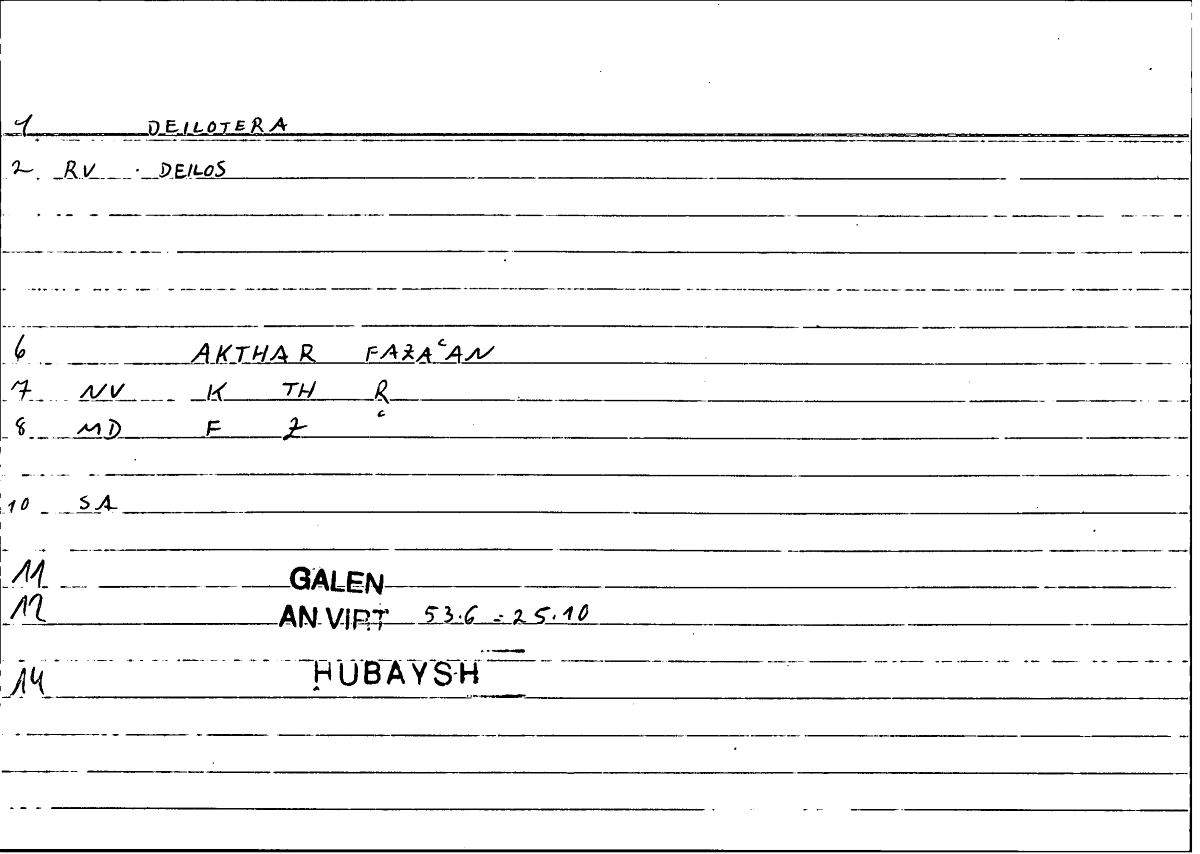 1 DEILOTERA
2. RV · DEILOS
6 AKTHAR FAZAᶜAN
7 NV K TH R
8 MD F Z ᶜ
10 SA
11 GALEN
12 AN VIRT 53.6 = 25.10
14 ḤUBAYSH